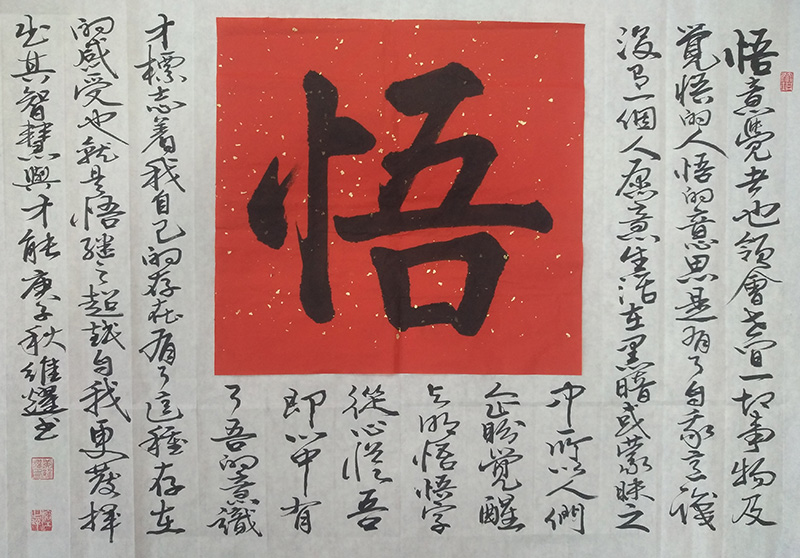 悟
悟意覺者也領會世间一切事物及
覚悟的人悟的意思是有了自我意識
没有一個人愿意生活在黑暗或蒙昧之
中所以人們
企盼覚醒
与明悟悟字
從心從吾
即心中有
了吾的意識
才標志着我自己的存在有了這種存在
的感受也就是悟继之超越自我更發揮
出其智慧與才能庚子秋維耀书